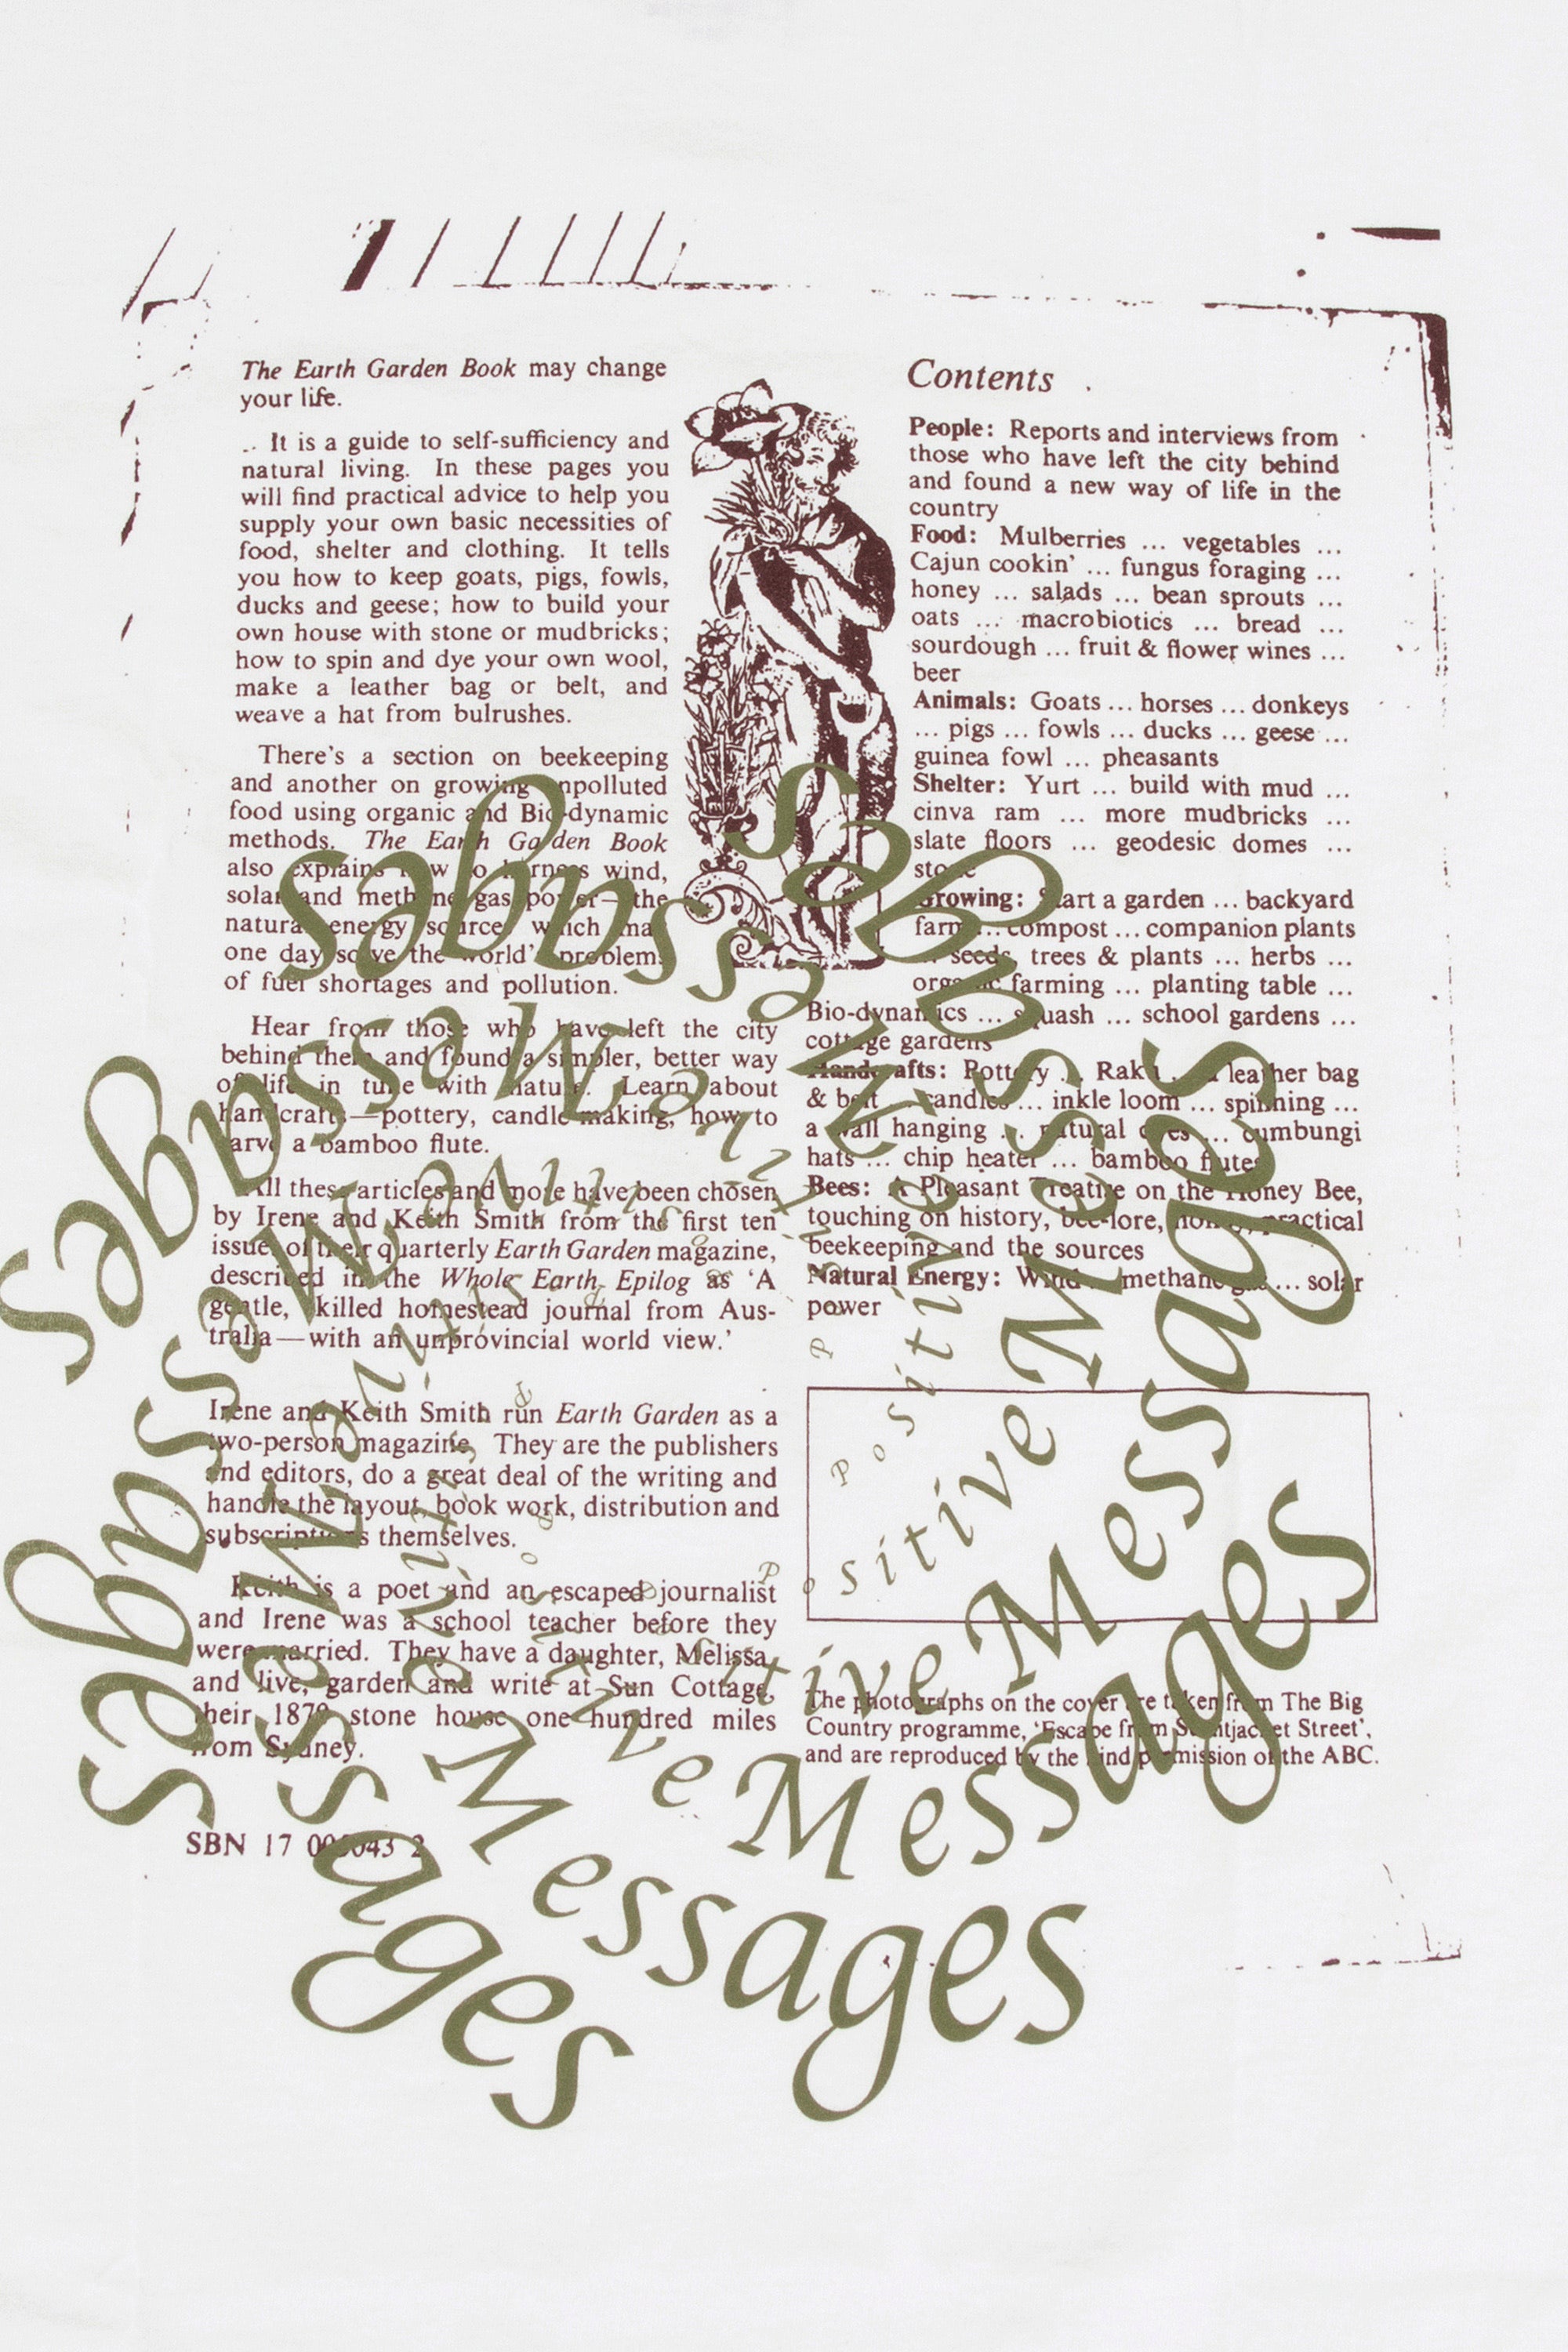 The Earth Garden Book may change
your life.
.. It is a guide to self-sufficiency and
natural living. In these pages you
will find practical advice to help you
supply your own basic necessities of
food, shelter and clothing. It tells
you how to keep goats, pigs, fowls,
ducks and geese; how to build your
own house with stone or mudbricks;
how to spin and dye your own wool,
make a leather bag or belt, and
weave a hat from bulrushes.
There's a section on beekeeping
and another on growing unpolluted
food using organic and Bio-dynamic
methods. The Earth Garden Book
also explains how to harness wind,
solar and methane gas power—the
natural energy sources which may
one day solve the world's problems
of fuel shortages and pollution.
Hear from those who have left the city
behind them and found a simpler, better way
of life in tune with nature. Learn about
handcrafts—pottery, candle making, how to
carve a bamboo flute.
All these articles and more have been chosen
by Irene and Keith Smith from the first ten
issues of their quarterly Earth Garden magazine,
described in the Whole Earth Epilog as 'A
gentle, skilled homestead journal from Aus-
tralia—with an unprovincial world view.'
Irene and Keith Smith run Earth Garden as a
two-person magazine. They are the publishers
and editors, do a great deal of the writing and
handle the layout, book work, distribution and
subscriptions themselves.
Keith is a poet and an escaped journalist
and Irene was a school teacher before they
were married. They have a daughter, Melissa,
and live, garden and write at Sun Cottage,
their 1879 stone house one hundred miles
from Sydney.
SBN 17 005043 2
Contents
People: Reports and interviews from
those who have left the city behind
and found a new way of life in the
country
Food: Mulberries ... vegetables ...
Cajun cookin' ... fungus foraging ...
honey ... salads ... bean sprouts ...
oats ... macrobiotics ... bread ...
sourdough ... fruit & flower wines ...
beer
Animals: Goats ... horses ... donkeys
... pigs ... fowls ... ducks ... geese ...
guinea fowl ... pheasants
Shelter: Yurt ... build with mud ...
cinva ram ... more mudbricks ...
slate floors ... geodesic domes ...
stone
Growing: Start a garden ... backyard
farm ... compost ... companion plants
... seeds, trees & plants ... herbs ...
organic farming ... planting table ...
Bio-dynamics ... squash ... school gardens ...
cottage gardens
Handcrafts: Pottery ... Raku ... a leather bag
& belt ... candles ... inkle loom ... spinning ...
a wall hanging ... natural dyes ... cumbungi
hats ... chip heater ... bamboo flutes
Bees: A Pleasant Treatise on the Honey Bee,
touching on history, bee-lore, honey, practical
beekeeping and the sources
Natural Energy: Wind ... methane gas ... solar
power
The photographs on the cover are taken from The Big
Country programme, 'Escape from Straitjacket Street',
and are reproduced by the kind permission of the ABC.
Positive Messages
Positive Messages
Positive Messages
Positive Messages
Positive Messages
Positive Messages
Positive Messages
Positive Messages